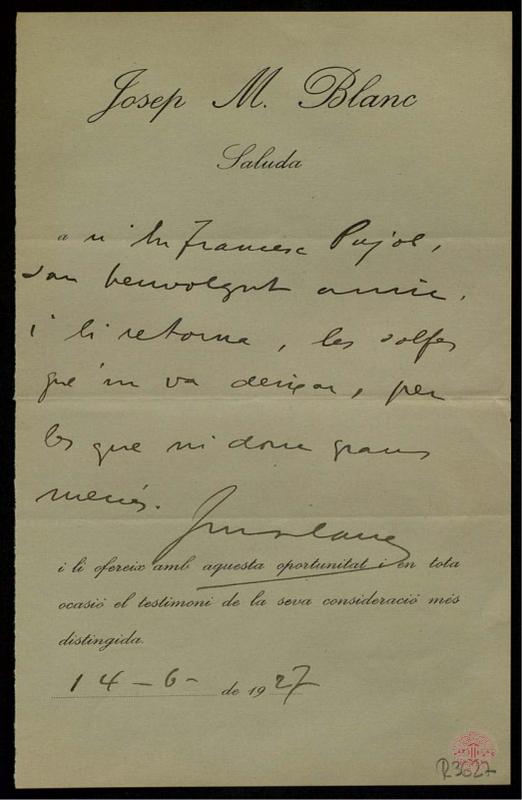 Josep M. Blanc
Saluda
a Francesc Pujol,
son benvolgut amic,
i li retorna, les solfes
que va deixar, per
les que dona grans
mercès.
i li ofereix amb aquesta oportunitat i en tota
ocasió el testimoni de la seva consideració més
distingida.
14-6- de 1927
R3627